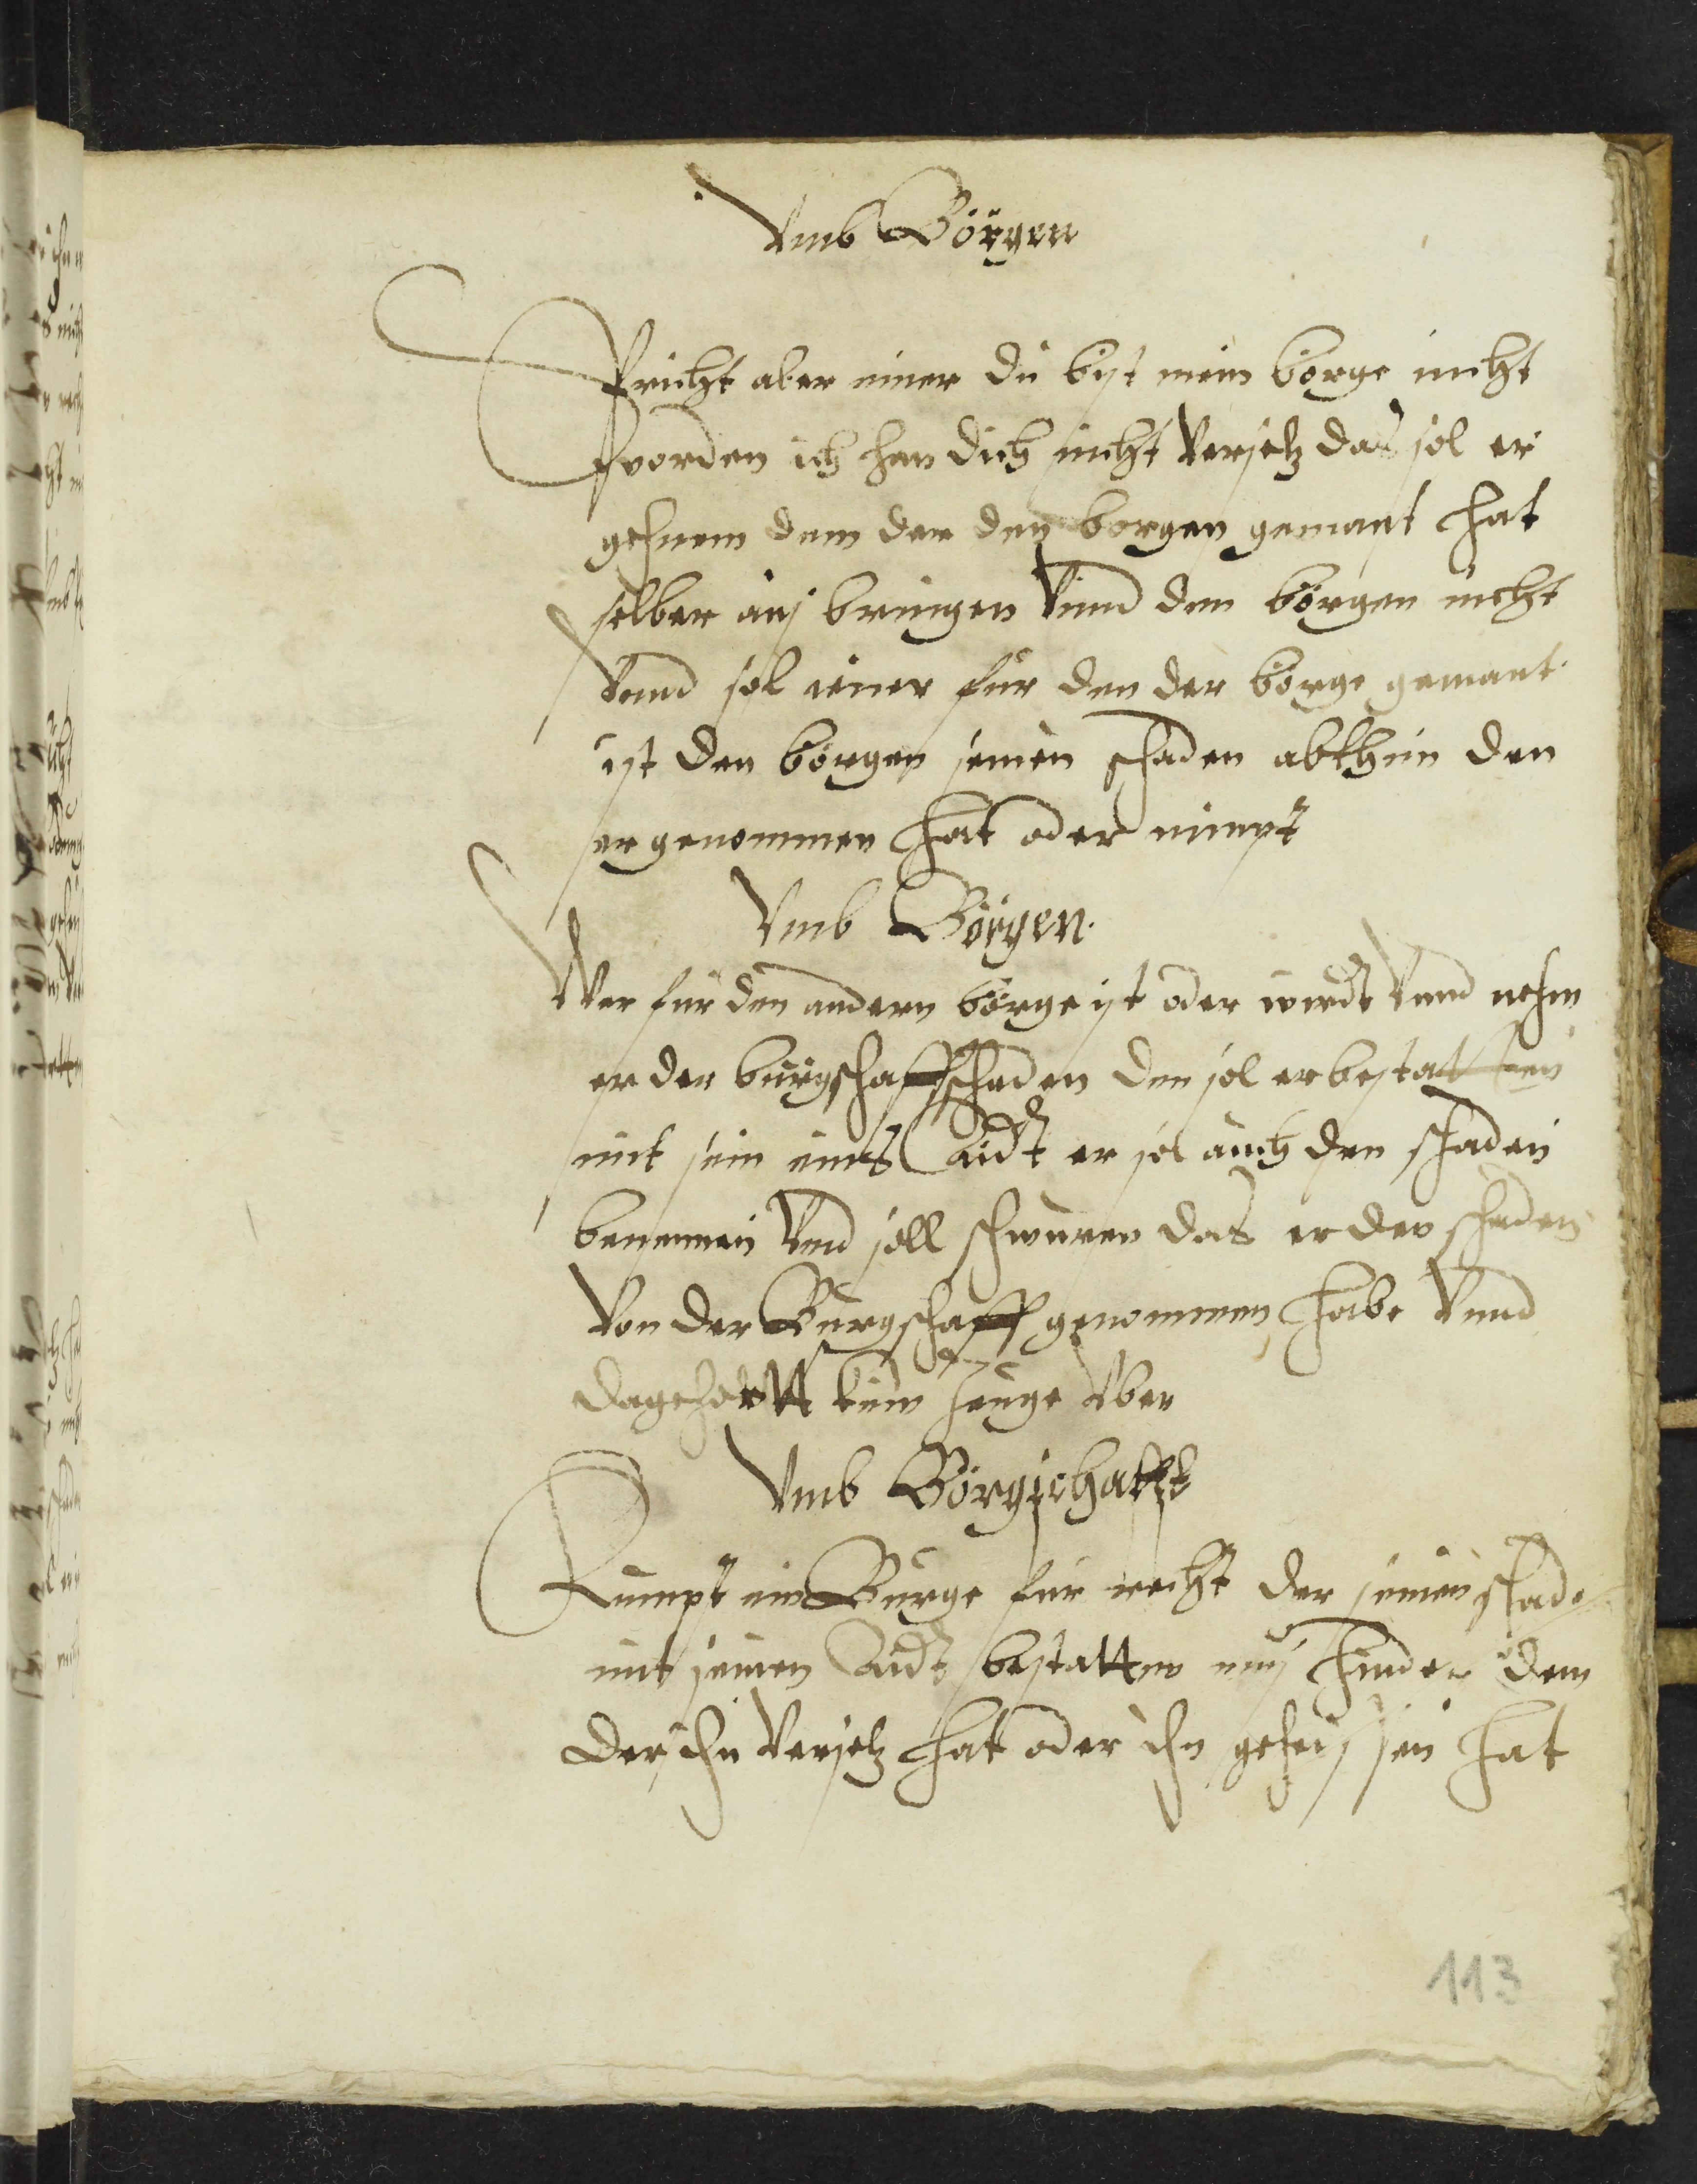 Vmb Börgen
Spricht aber einer du bist mein börge nicht
worden ich han dich nicht versetz das sol er
gehnem dem der den borgen gemant hat
selber aus bringen Vnnd den börgen nicht
Vnnd sol iener für den der börge gemant
ist den börgen seinen schaden abthun den
er genommen hat oder nimpt
Vmb Börgen.
Wer für den andern börge ist oder wirdt Vnnd nehm
er der burgschafft schaden den sol er bestatten
mit sein eines Aidt er sol auch den schaden
benennen Vnd soll schweren das er den schaden
Von der Burgschafft genommen habe Vnnd
da gehortt kein zeuge Vber
Vmb Börgschafft
Kumpt ein Burge für recht der seinen schade
mit seinen Aidt bestatten mus hinder dem
der ihn Versetz hat oder ihn geheissen hat
113